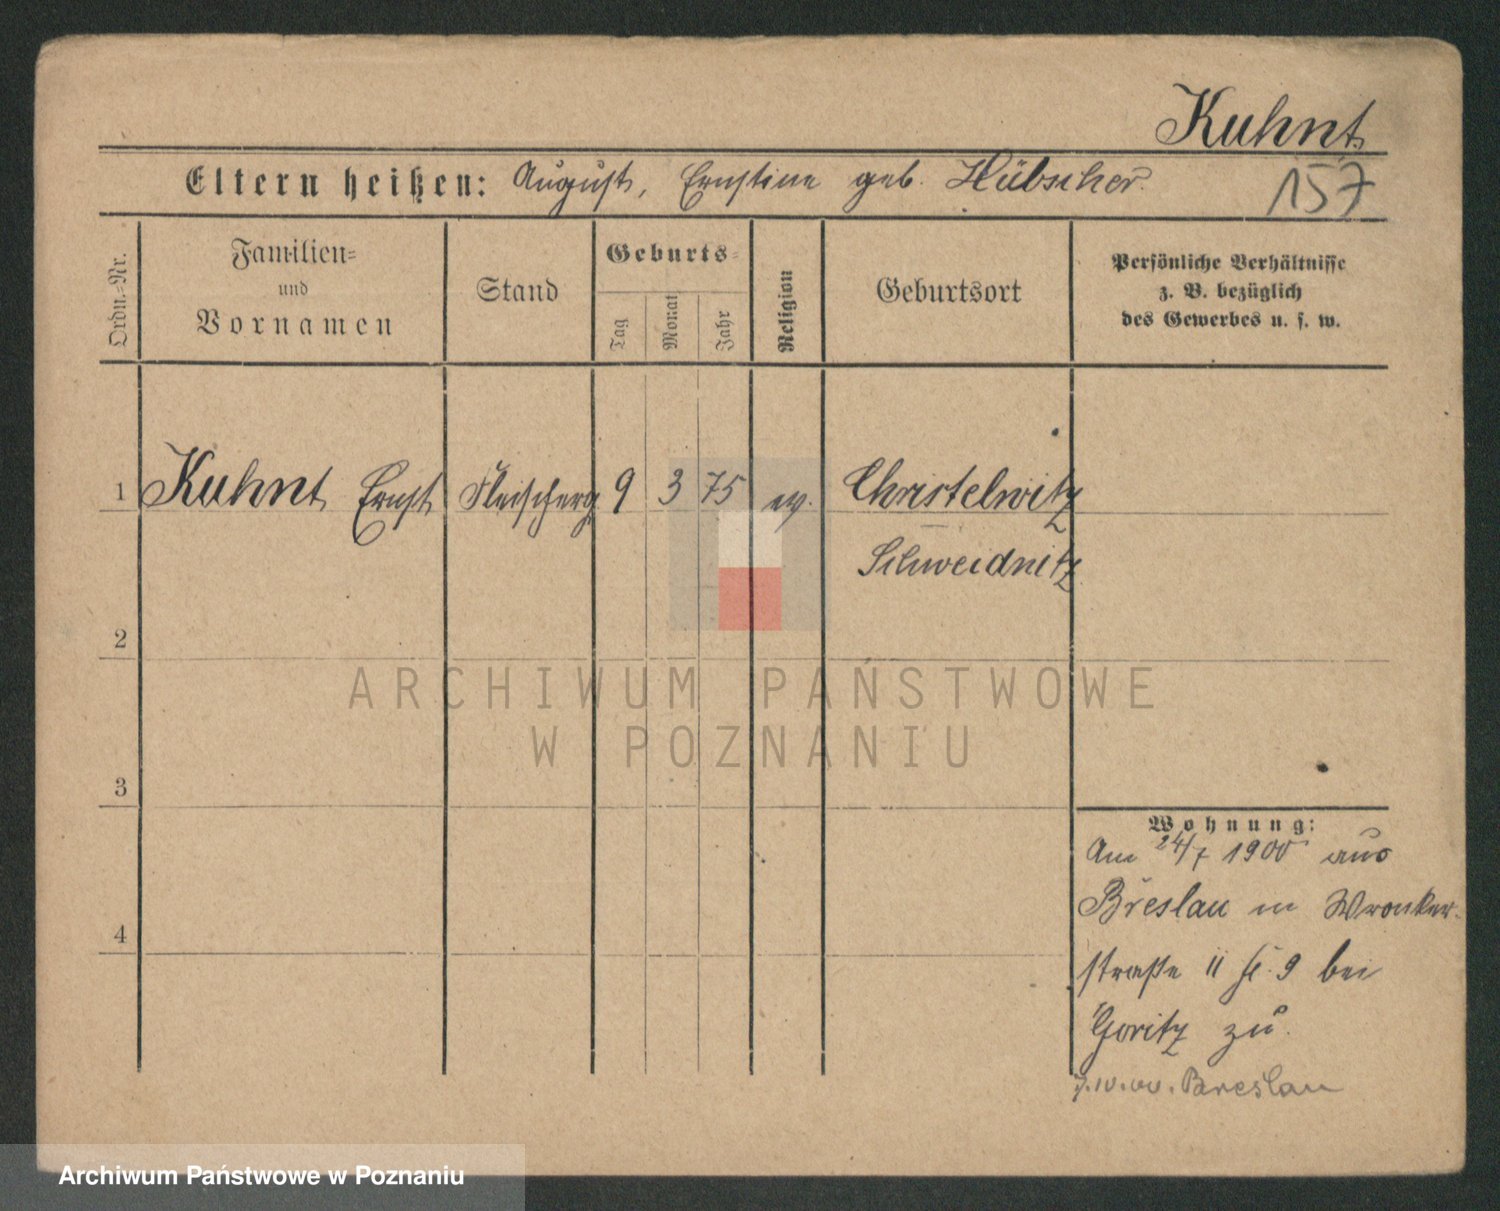 Kuhnt
Eltern heißen: August, Ernstine geb. Hübscher.
157
Ordn.-Nr.
Familien-
und
Vornamen
Stand
Geburts-
Tag
Monat
Jahr
Religion
Geburtsort
Persönliche Verhältnisse
z. B. bezüglich
des Gewerbes u. s. w.
1 Kuhnt Ernst Fleischerg 9 3 75 ev. Christelwitz
Schweidnitz
2
3
4
Wohnung:
Am 24/7 1900 aus
Breslau in Wronker-
straße 11 bei
Goritz zu.
Breslau
ARCHIWUM PAŃSTWOWE
W POZNANIU
Archiwum Państwowe w Poznaniu